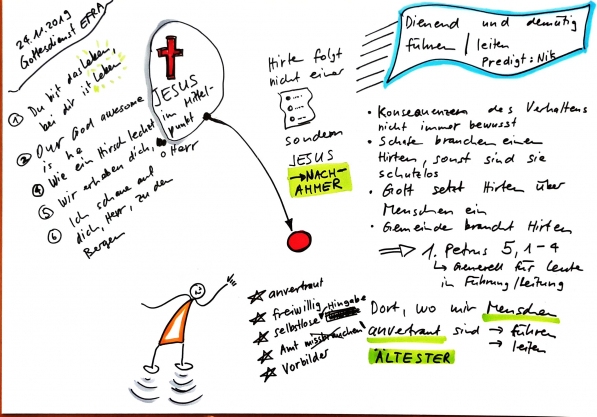 24.11.2019
Gottesdienst EFRA
① Du bist das Leben,
bei dir ist Leben
② Our God awesome
is he
④ Wie ein Hirsch lechzt
⑤ Wir erhoben dich, o Herr
⑥ Ich schaue auf
dich, Herr, zu den
Bergen
JESUS
im Mittel-
punkt
Hirte folgt
nicht einer
sondern
JESUS
→ NACH-
AHMER
Dienend und demütig
führen / leiten
Predigt: Nik
• Konsequenzen des Verhaltens
nicht immer bewusst
• Schafe brauchen einen
Hirten, sonst sind sie
schutzlos
• Gott setzt Hirten über
Menschen ein
• Gemeinde braucht Hirten
⇒ 1. Petrus 5, 1-4
↳ Generell für Leute
in Führung/Leitung
☆ anvertraut
☆ freiwillig
☆ selbstlose Hingabe
☆ Amt missbrauchen!
☆ Vorbilder
Dort, wo mir Menschen
anvertraut sind → führen
→ leiten
ÄLTESTER